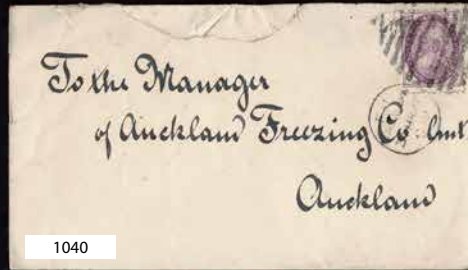 To the Manager
of Auckland Freezing Co. Lmt
Auckland
1040